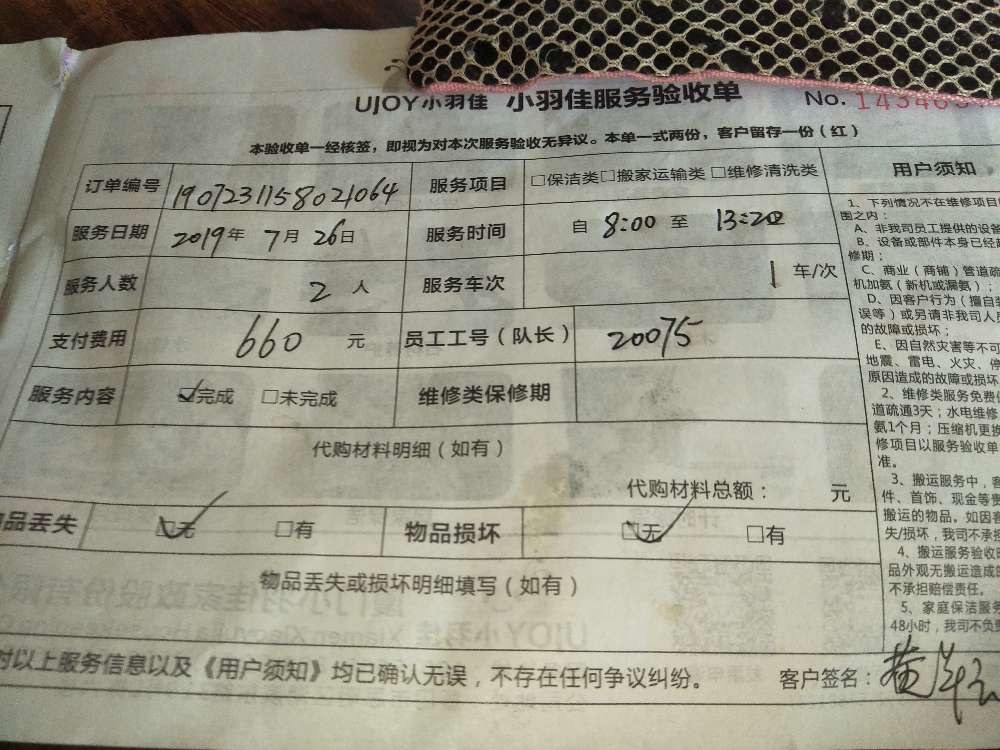 UJOY小羽佳 小羽佳服务验收单 No.
本验收单一经核签，即视为对本次服务验收无异议。本单一式两份，客户留存一份（红）
订单编号 1907231158021064 服务项目 □保洁类□搬家运输类 □维修清洗类
服务日期 2019年 7月 26日 服务时间 自 8:00 至 13:20
服务人数 2 人 服务车次 1 车/次
支付费用 660 元 员工工号（队长） 20075
服务内容 ☑完成 □未完成 维修类保修期
代购材料明细（如有）
代购材料总额： 元
品丢失 ☑无 □有 物品损坏 ☑无 □有
物品丢失或损坏明细填写（如有）
对以上服务信息以及《用户须知》均已确认无误，不存在任何争议纠纷。 客户签名：黄
用户须知
1、下列情况不在维修项目
围之内：
A、非我司员工提供的设备
B、设备或部件本身已经
修期；
C、商业（商铺）管道疏
机加氨（新机或漏氨）；
D、因客户行为（擅自
误等）或另请非我司人员
的故障或损坏；
E、因自然灾害等不可
地震、雷电、火灾、停
原因造成的故障或损坏
2、维修类服务免费
道疏通3天；水电维修
氨1个月；压缩机更换
修项目以服务验收单
准。
3、搬运服务中，客
件、首饰、现金等贵
搬运的物品。如因
失/损坏，我司不承担
4、搬运服务验收
品外观无搬运造成的
不承担赔偿责任。
5、家庭保洁服务
48小时，我司不负